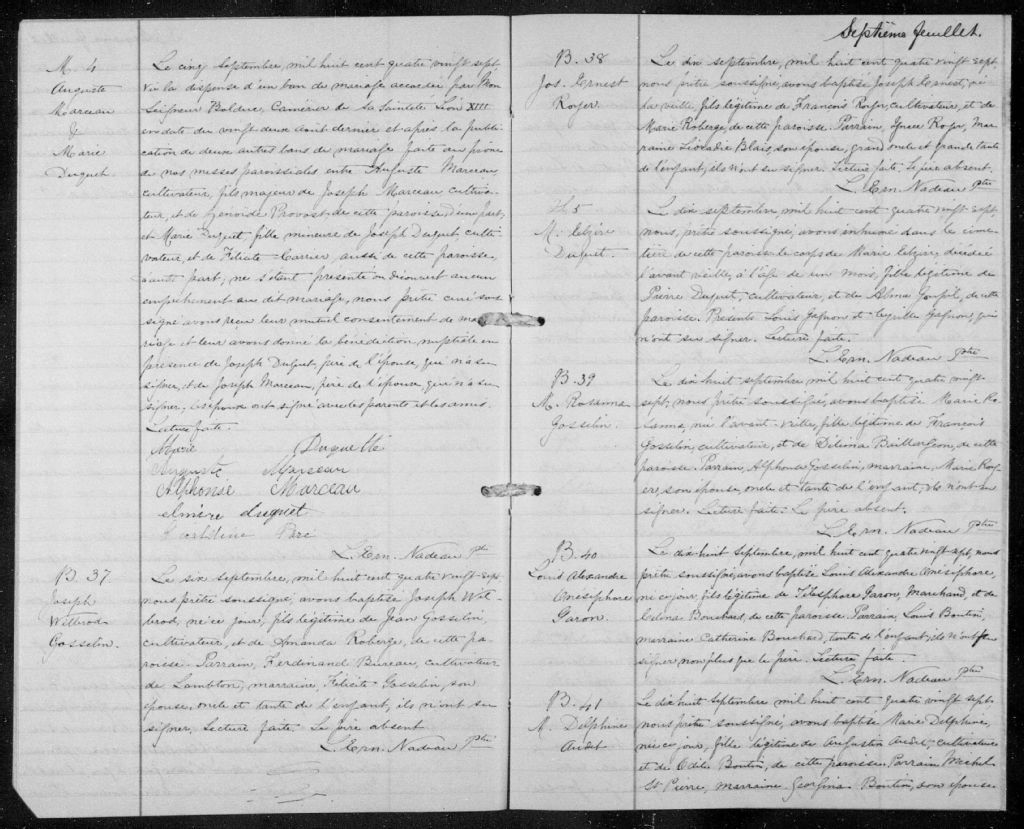 M. 4
Auguste
Marceau
&
Marie
Duguet
Le cinq septembre, mil huit cent quatre vingt sept,
Vu la dispense d'un ban de mariage accordée par Mon
Seigneur Bolduc, Camérier de Sa Sainteté Léon XIII
en date du vingt deux août dernier et après la publi
cation de deux autres bans de mariage faite au prône
de nos messes paroissiales entre Auguste Marceau,
cultivateur, fils majeur de Joseph Marceau cultiva-
teur, et de Genoïde Provost de cette paroisse d'une part,
et Marie Duguet, fille mineure de Joseph Duguet, culti
vateur, et de Félicité Carrier, aussi de cette paroisse,
d'autre part, ne s'étant présenté ou découvert aucun
empêchement au dit mariage, nous prêtre curé sous
signé avons reçu leur mutuel consentement de ma
riage et leur avons donné la bénédiction nuptiale en
présence de Joseph Duguet, père de l'épouse, qui n'a su
signer, et de Joseph Marceau, père de l'époux, qui n'a su
signer, les époux ont signé avec les parents et les amis.
Lecture faite.
Marie Duguette
Auguste Marceau
Alphonse Marceau
Elmire Duguet
L. Ern. Nadeau Ptre
B. 37
Joseph
Wilbrod
Gosselin.
Le six septembre, mil huit cent quatre vingt-sept
nous prêtre soussigné, avons baptisé Joseph Wil-
brod, né ce jour, fils légitime de Jean Gosselin,
cultivateur, et de Amanda Roberge, de cette pa-
roisse. Parrain, Ferdinand Bureau, cultivateur
de Lambton, marraine, Félicité Gosselin, son
épouse, oncle et tante de l'enfant, ils n'ont su
signer. Lecture faite. Le père absent.
L. Ern. Nadeau Ptre
Septième feuillet.
B. 38
Jos. Ernest
Royer.
Le dix septembre, mil huit cent quatre vingt sept,
nous prêtre soussigné, avons baptisé Joseph Ernest, né
la veille, fils légitime de François Royer, cultivateur, et de
Marie Roberge, de cette paroisse. Parrain, Ignace Royer, mar
raine Léocadie Blais, son épouse, grand oncle et grande tante
de l'enfant, ils n'ont su signer. Lecture faite. Le père absent.
L. Ern. Nadeau Ptre
H. 5
M. Elzire
Duguet.
Le dix septembre, mil huit cent quatre vingt sept,
nous, prêtre soussigné, avons inhumé dans le cime-
tière de cette paroisse le corps de Marie Elzire, décédée
l'avant veille, à l'âge de un mois, fille légitime de
Pierre Duguet, cultivateur, et de Alma Goupil, de cette
paroisse. Présents Louis Gagnon et Gagnon, qui
n'ont su signer. Lecture faite.
L. Ern. Nadeau Ptre
B. 39
M. Rosanna
Gosselin.
Le dix huit septembre, mil huit cent quatre vingt
sept, nous prêtre soussigné, avons baptisé Marie Ro
sanna, née l'avant-veille, fille légitime de François
Gosselin, cultivateur, et de Délima Baillargeon, de cette
paroisse. Parrain, Alphonse Gosselin, marraine, Marie Roy-
er, son épouse, oncle et tante de l'enfant, ils n'ont su
signer. Lecture faite. Le père absent.
L. Ern. Nadeau Ptre
B. 40
Louis Alexandre
Onésiphore
Garon.
Le dix-huit septembre, mil huit cent quatre vingt-sept, nous
prêtre soussigné, avons baptisé Louis Alexandre Onésiphore,
né ce jour, fils légitime de Télesphore Garon, Marchand, et de
Célina Bouchard, de cette paroisse. Parrain, Louis Boutin,
marraine Catherine Bouchard, tante de l'enfant, ils n'ont su
signer non plus que le père. Lecture faite.
L. Ern. Nadeau Ptre
B. 41
M. Delphine
Audet
Le dix huit septembre mil huit cent quatre vingt sept
nous prêtre soussigné, avons baptisé Marie Delphine,
née ce jour, fille légitime de Augustin Audet, cultivateur
et de Odile Boutin, de cette paroisse. Parrain Michel
St Pierre, marraine Georgina Boutin, son épouse